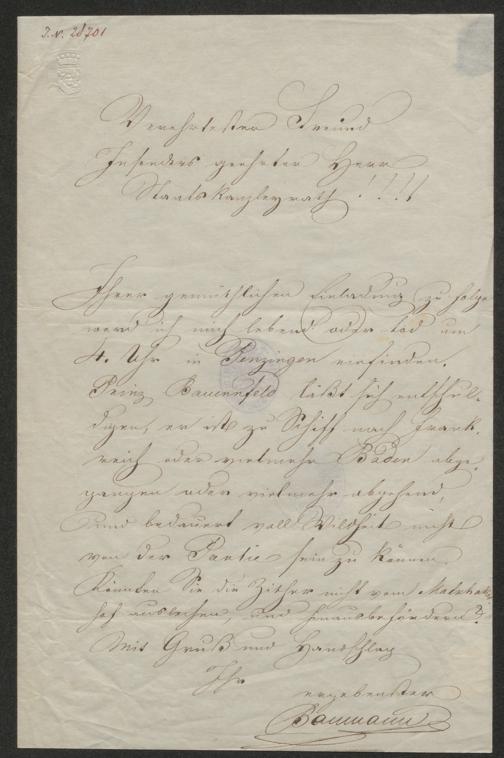 J. N. 28701
Verehrtester Freund
Insonders geehrter Herr
Staatskanzleyrath !!!!
Ihrer gemüthlichen Einladung zu folge
werd ich mich lebend oder tod um
4. Uhr in Penzingen einfinden.
Prinz Bauernfeld läßt sich entschul-
digen, er ist zu Schiff nach Frank-
reich oder vielmehr Baden abge-
gangen oder vielmehr abgehend,
und bedauert voll Wildheit nicht
von der Partie sein zu können.
Könnten Sie die Zither nicht vom
hof ausleihen, und hinausbefördern?
Mit Gruß und Handschlag
Ihr
ergebenster
Baumann